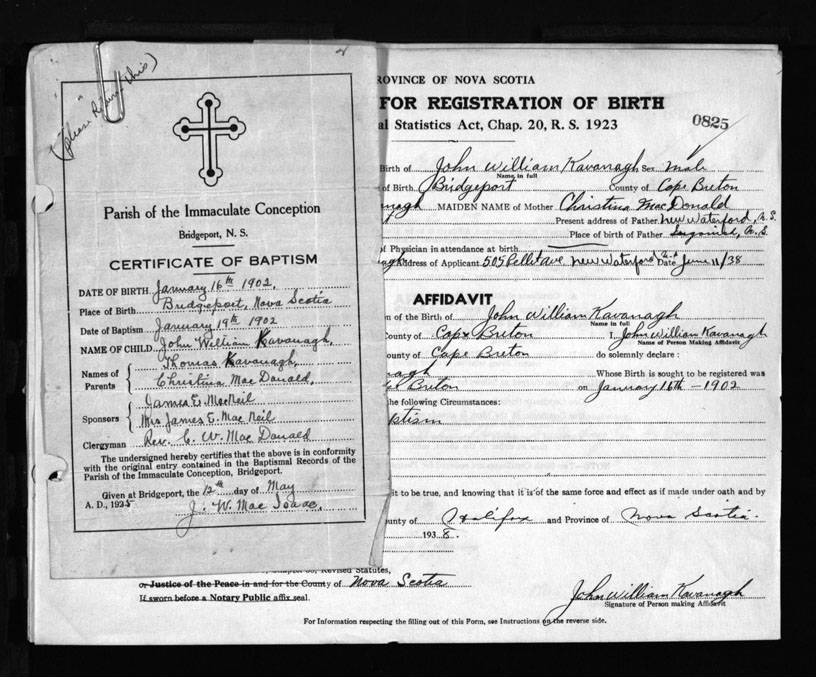 (please Return this)
Parish of the Immaculate Conception
Bridgeport, N. S.
CERTIFICATE OF BAPTISM
DATE OF BIRTH January 16th 1902.
Place of Birth Bridgeport, Nova Scotia
Date of Baptism January 19th 1902
NAME OF CHILD John William Kavanagh,
Names of Parents { Thomas Kavanagh,
Christina Mac Donald,
Sponsors { James E. MacNeil
Mrs James E. Mac Neil
Clergyman Rev. C. W. Mac Donald
The undersigned hereby certifies that the above is in conformity
with the original entry contained in the Baptismal Records of the
Parish of the Immaculate Conception, Bridgeport.
Given at Bridgeport, the 12th day of May
A. D., 1925
J. W. Mac Isaac,
ROVINCE OF NOVA SCOTIA
FOR REGISTRATION OF BIRTH
al Statistics Act, Chap. 20, R. S. 1923
0825
Birth of John William Kavanagh Sex male
Name in full
of Birth Bridgeport County of Cape Breton
nagh MAIDEN NAME of Mother Christina MacDonald
Present address of Father New Waterford, N.S.
Place of birth of Father N.S.
of Physician in attendance at birth
gh Address of Applicant 505 Ave. New Waterford N.S. Date June 11/38
AFFIDAVIT
n of the Birth of John William Kavanagh
Name in full
County of Cape Breton I, John William Kavanagh
Name of Person Making Affidavit
ounty of Cape Breton do solemnly declare :
nagh Whose Birth is sought to be registered was
Breton on January 16th - 1902
the following Circumstances:
ptism
it to be true, and knowing that it is of the same force and effect as if made under oath and by
unty of Halifax and Province of Nova Scotia.
1938.
Revised Statutes,
or Justice of the Peace in and for the County of Nova Scotia
If sworn before a Notary Public affix seal.
John William Kavanagh
Signature of Person making Affidavit
For Information respecting the filling out of this Form, see Instructions on the reverse side.